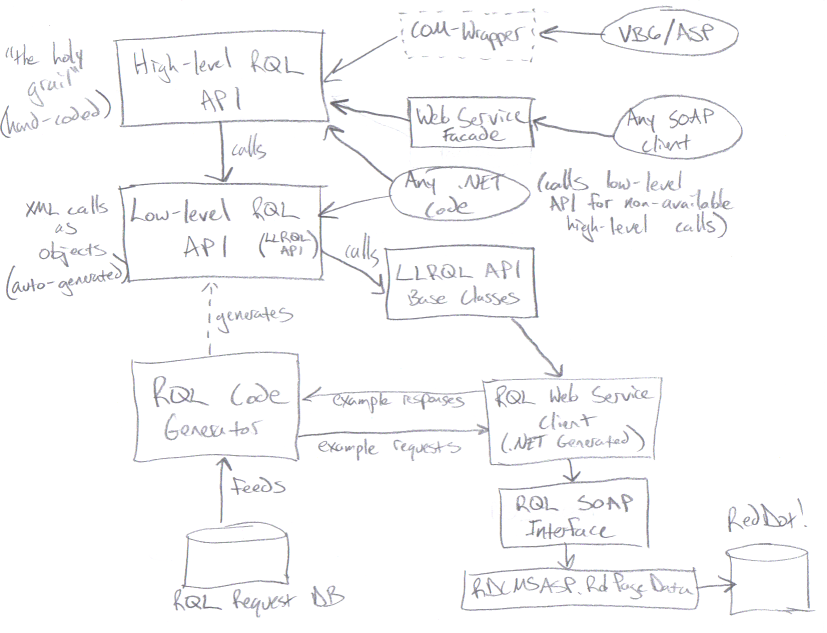 "the holy
grail"
(hand-coded)
High-level RQL
API
COM-Wrapper
VB6/ASP
Web Service
Facade
Any SOAP
client
calls
Any .NET
Code
(calls low-level
API for non-available
high-level calls)
XML calls
as
objects
(auto-generated)
Low-level RQL
API
(LLRQL
API)
calls
LLRQL API
Base Classes
generates
RQL Code
Generator
example responses
example requests
RQL Web Service
Client
(.NET Generated)
feeds
RQL SOAP
Interface
RedDot!
RQL Request DB
RDCMSASP.RdPageData